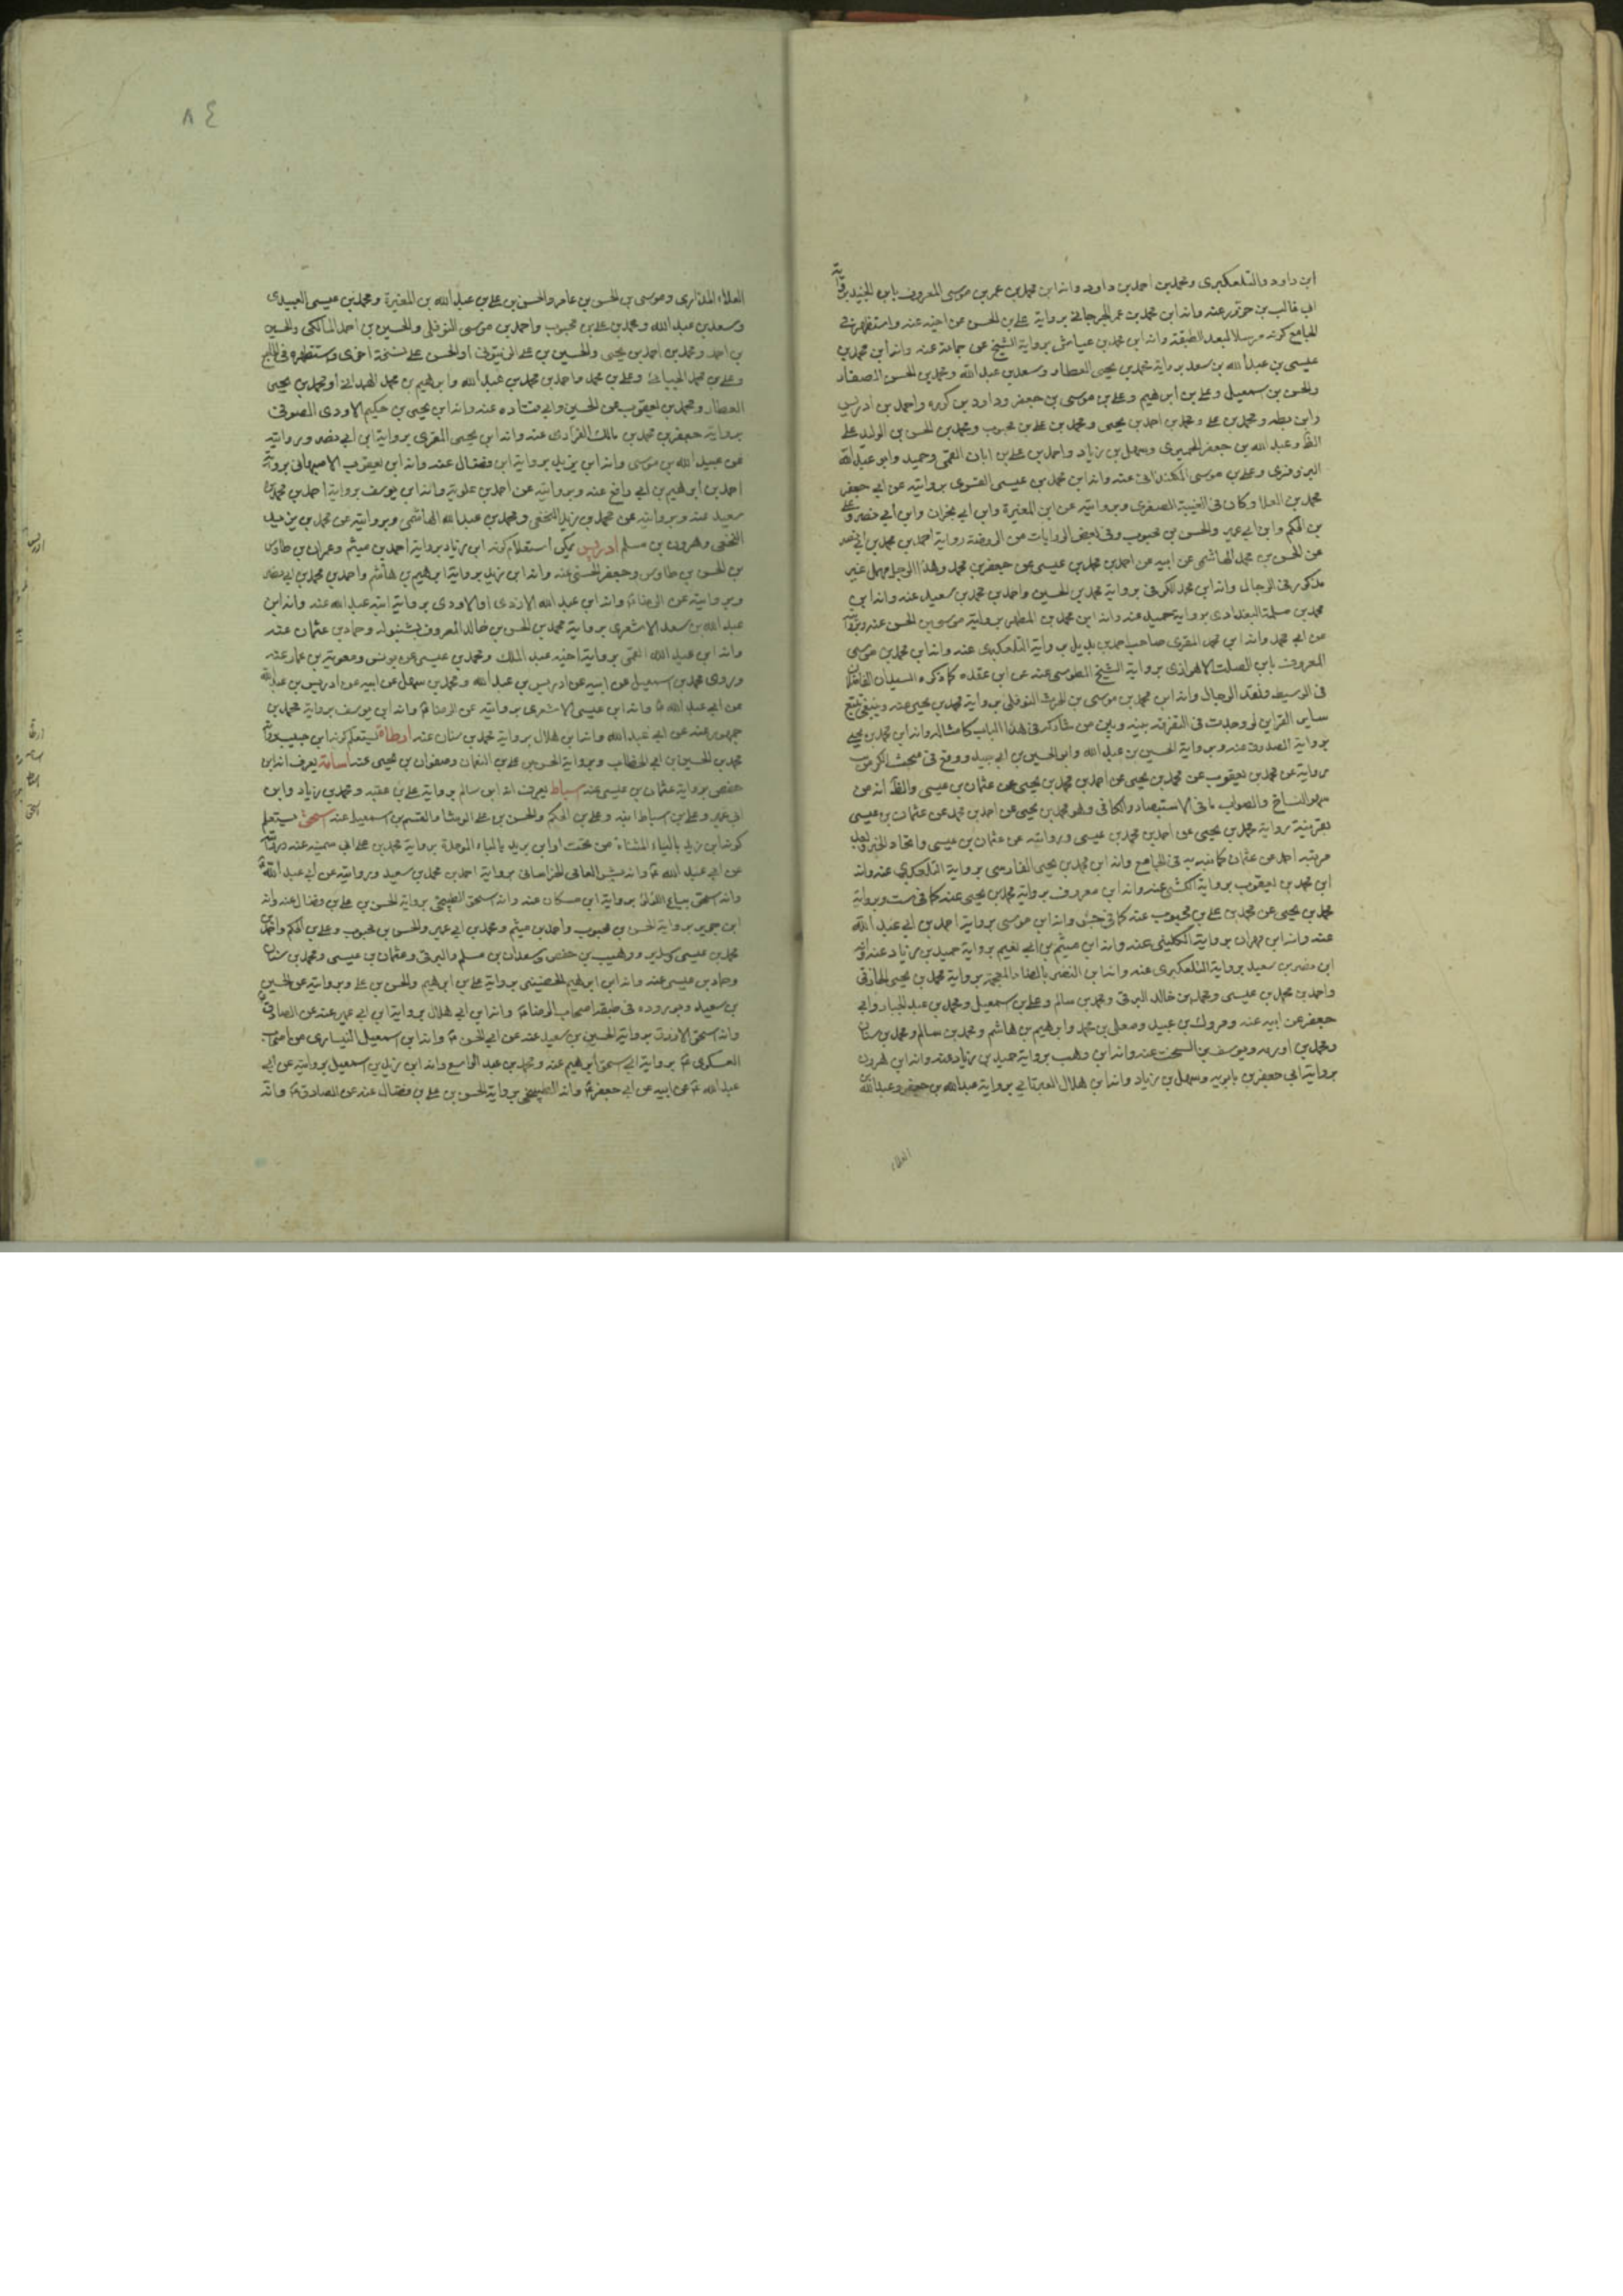 ابن داود والتلعكبرى ومحمد بن احمد بن داود وانه ابن محمد بن عمر بن موسى المعروف بابن الجنيد
ابى غالب بن عنه وانه ابن محمد بن عمر الجرجانى برواية على بن الحسن عن اخيه عنه واستظهر فى
الجامع كونه مرسلا لبعد الطبقة وانه ابن محمد بن عياش برواية الشيخ عن جماعة عنه وانه ابن محمد بن
عيسى بن عبد الله بن سعد برواية محمد بن يحيى العطار وسعد بن عبد الله ومحمد بن الحسن الصفار
والحسن بن سمعيل وعلى بن ابرهيم وعلى بن موسى بن جعفر وداود بن كوره واحمد بن ادريس
وابن بطه ومحمد بن على ومحمد بن احمد بن يحيى ومحمد بن على بن محبوب ومحمد بن الحسن بن الوليد على
الظ وعبد الله بن جعفر الحميرى وسهل بن زياد واحمد بن على بن ابان القمى وحميد وابو عبد الله
البزوفرى وعلى بن موسى الكمندانى عنه وانه ابن محمد بن عيسى القسرى بروايته عن ابى جعفر
محمد بن العلا وكان فى الغيبة الصغرى وبروايته عن ابن المغيرة وابن ابى نجران وابن ابى نصر وعلى
بن الحكم وابن ابى عمير والحسن بن محبوب وفى بعض الروايات من الروضة رواية احمد بن محمد بن ابى نصر
عن الحسن بن محمد الهاشمى عن ابيه عن احمد بن محمد بن عيسى عن جعفر بن محمد وهذا الرجل مهمل غير
مذكور فى الرجال وانه ابن محمد الكوفى برواية محمد بن الحسين واحمد بن محمد بن سعيد عنه وانه ابن
محمد بن مسلمة البغدادى برواية حميد عنه وانه ابن محمد بن المطهر برواية موسى بن الحسن عنه وبروايته
عن ابى محمد وانه ابن محمد المقرى صاحب احمد بن بديل برواية التلعكبرى عنه وانه ابن محمد بن موسى
المعروف بابن الصلت الاهوازى برواية الشيخ الطوسى عنه عن ابن عقده كما ذكره السيدان الفاضلان
فى الوسيط ونقد الرجال وانه ابن محمد بن موسى بن الحرث النوفلى برواية محمد بن يحيى عنه وينبغى تتبع
ساير القراين لو وجدت فى التفرقة بينه وبين من شاركه فى هذا الباب كامثاله وانه ابن محمد بن يحيى
برواية الصدوق عنه وبرواية الحسين بن عبد الله وابو الحسين بن ابى جيد ووقع فى مبحث الكر من
رواية عن محمد بن يعقوب عن محمد بن يحيى عن احمد بن محمد بن يحيى عن عثمان بن عيسى والظ انه من
سهو النساخ والصواب ما فى الاستبصار والكافى وهو محمد بن يحيى عن احمد بن محمد عن عثمان بن عيسى
بقرينة رواية محمد بن يحيى عن احمد بن محمد بن عيسى وروايته عن عثمان بن عيسى واتحاد الخبر وبعد
مرتبة احمد عن عثمان كما نبه به فى الجامع وانه ابن محمد بن يحيى الفارسى برواية التلعكبرى عنه وانه
ابن محمد بن يعقوب برواية الكشى عنه وانه ابن معروف برواية محمد بن يحيى عنه كما فى ست وبرواية
محمد بن يحيى عن محمد بن على بن محبوب عنه كما فى جش وانه ابن موسى برواية احمد بن ابى عبد الله
عنه وانه ابن مهران برواية الكلينى عنه وانه ابن ميثم بن ابى نعيم برواية حميد بن زياد عنه وانه
ابن نصر بن سعيد برواية التلعكبرى عنه وانه ابن النضر بالضاد المعجمة برواية محمد بن يحيى الخازنى
واحمد بن محمد بن عيسى ومحمد بن خالد البرقى ومحمد بن سالم وعلى بن سمعيل ومحمد بن عبد الجبار وابى
جعفر عن ابيه عنه ومروك بن عبيد ومعلى بن محمد وابرهيم بن هاشم ومحمد بن سالم ومحمد بن سنان
ومحمد بن اورمه ويوسف بن السخت عنه وانه ابن وهب برواية حميد بن زياد عنه وانه ابن هرون
برواية ابى جعفر بن بابويه وسهل بن زياد وانه ابن هلال العبرتائى برواية عبد الله بن جعفر وعبد الله بن
العلاء
٨٤
العلاء المذارى وموسى بن الحسن بن عامر والحسن بن على بن عبد الله بن المغيرة ومحمد بن عيسى العبيدى
وسعد بن عبد الله ومحمد بن على بن محبوب واحمد بن موسى النوفلى والحسين بن احمد المالكى والحسين
بن احمد ومحمد بن احمد بن يحيى والحسين بن على الزيتونى او الحسن على نسخة اخرى واستظهره فى الجامع
وعلى بن محمد وعلى بن محمد واحمد بن محمد بن عبد الله وابرهيم بن محمد الهمدانى او محمد بن يحيى
العطار ومحمد بن يعقوب عن الحسين وابى قتاده عنه وانه ابن يحيى بن حكيم الاودى الصوفى
برواية جعفر بن محمد بن مالك الفزارى عنه وانه ابن يحيى المقرى برواية ابن ابى نصر وبروايته
عن عبيد الله بن موسى وانه ابن يزيد برواية ابن فضال عنه وانه ابن يعقوب الاصبهانى برواية
احمد بن ابرهيم بن ابى رافع عنه وبروايته عن احمد بن علوية وانه ابن يوسف برواية احمد بن محمد بن
سعيد عنه وبروايته عن محمد بن يزيد النخعى ومحمد بن عبد الله الهاشمى وبروايته عن محمد بن يزيد
النخعى وهرون بن مسلم ادريس يمكن استعلام كونه ابن زياد برواية احمد بن ميثم وعمران بن طاوس
بن الحسن بن طاوس وجعفر الحسنى عنه وانه ابن زيد برواية ابرهيم بن هاشم واحمد بن محمد بن ابى نصر
وبروايته عن الرضا ع وانه ابن عبد الله الازدى او الاودى برواية ابنه عبد الله عنه وانه ابن
عبد الله بن سعد الاشعرى برواية محمد بن الحسن بن خالد المعروف بشنبوله وحماد بن عثمان عنه
وانه ابن عبد الله القمى برواية اخيه عبد الملك ومحمد بن عيسى عن يونس ومعوية بن عمار عنه
وروى محمد بن اسمعيل عن ابيه عن ادريس بن عبد الله ومحمد بن سهل عن ابيه عن ادريس بن عبد الله
عن ابى عبد الله ع وانه ابن عيسى الاشعرى بروايته عن الرضا ع وانه ابن يوسف برواية محمد بن
جمهور عنه عن ابى عبد الله وانه ابن هلال برواية محمد بن سنان عنه ارطاة يستعلم كونه ابن حبيب برواية
محمد بن الحسين بن ابى الخطاب وبرواية الحسن بن على بن النعمان وصفوان بن يحيى عنه اسامة يعرف انه ابن
حفص برواية عثمان بن عيسى عنه اسباط يعرف انه ابن سالم برواية على بن عقبه ومحمد بن زياد وابن
ابى عمير وعلى بن اسباط ابنه وعلى بن الحكم والحسن بن على الوشا والقسم بن اسمعيل عنه اسحق يستعلم
كونه ابن يزيد بالياء المثناة من تحت او ابن بريد بالباء الموحدة برواية محمد بن على ابى سمينه عنه وبروايته
عن ابى عبد الله ع وانه بشر الخراسانى برواية احمد بن محمد بن سعيد وبروايته عن ابى عبد الله ع
وانه اسحق بياع اللؤلؤ برواية ابن مسكان عنه وانه اسحق الطبيخى برواية الحسن بن على بن فضال عنه وانه
ابن جرير برواية الحسن بن محبوب واحمد بن ميثم ومحمد بن ابى عمير والحسن بن محبوب وعلى بن الحكم واحمد بن
محمد بن عيسى وسدير ووهيب بن حفص وسعدان بن مسلم والبرقى وعثمان بن عيسى ومحمد بن سنان
وحماد بن عيسى عنه وانه ابن ابرهيم الحضينى برواية على بن ابرهيم والحسن بن على وبروايته عن الحسين
بن سعيد وبوروده فى طبقة اصحاب الرضا ع وانه ابن ابى هلال برواية ابن ابى عمير عنه عن الصادق ع
وانه اسحق الازرق برواية الحسين بن سعيد عنه عن ابى الحسن ع وانه ابن اسمعيل النيسابورى من اصحاب
العسكرى ع برواية ابى اسحق ابرهيم عنه ومحمد بن عبد الواسع وانه ابن يزيد بن اسمعيل بروايته عن ابى
عبد الله ع عن ابيه عن ابى جعفر ع وانه الطبيخى برواية الحسن بن على بن فضال عنه عن الصادق ع وانه